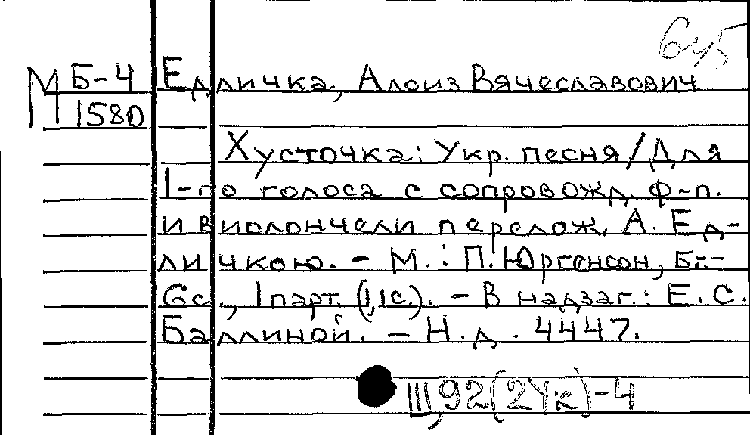 645
М Б-4 Едличка, Алоиз Вячеславович
1580
Хусточка: Укр. песня / Для
1-го голоса с сопровожд. ф-п.
и виолончели перелож. А. Ед-
личкою. - М.: П. Юргенсон, Бг.-
6с., 1парт. (1,1с.). - В надзаг.: Е.С.
Баллиной. - Н.д. 4447.
III,92(2Ук)-4